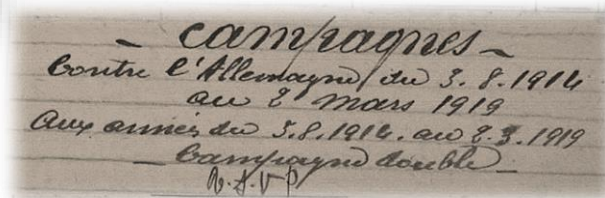 - campagnes -
Contre l'Allemagne du 3.8.1914
au 2 mars 1919
aux armées du 3.8.1914. au 2.3.1919
- Campagne double -
R.A.V.P